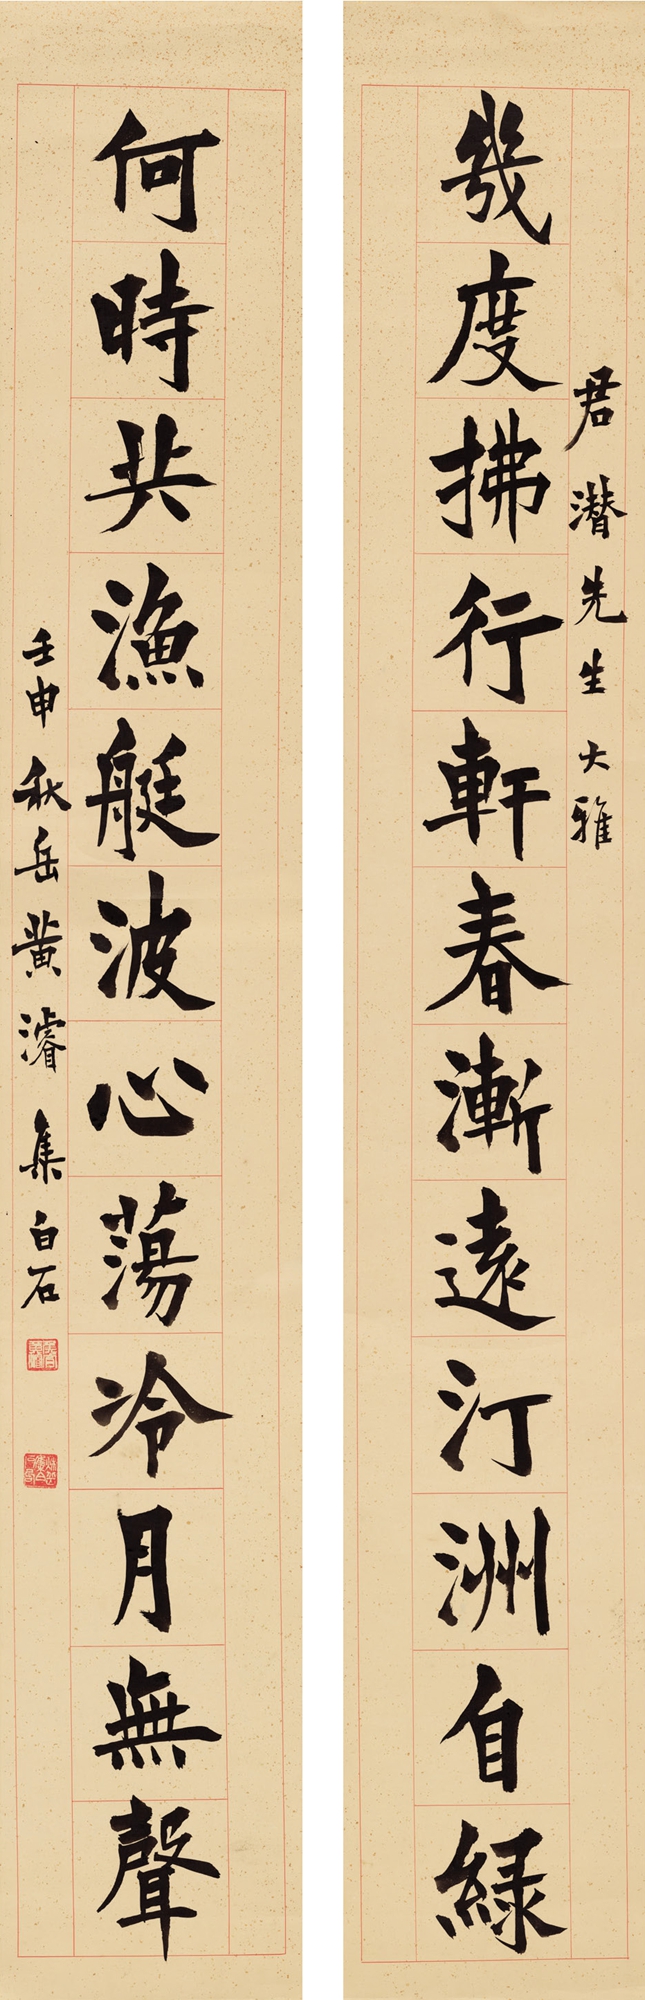 君潛先生大雅
幾度拂行軒春漸遠汀洲自綠
何時共漁艇波心蕩冷月無聲
壬申秋岳黃濬集白石